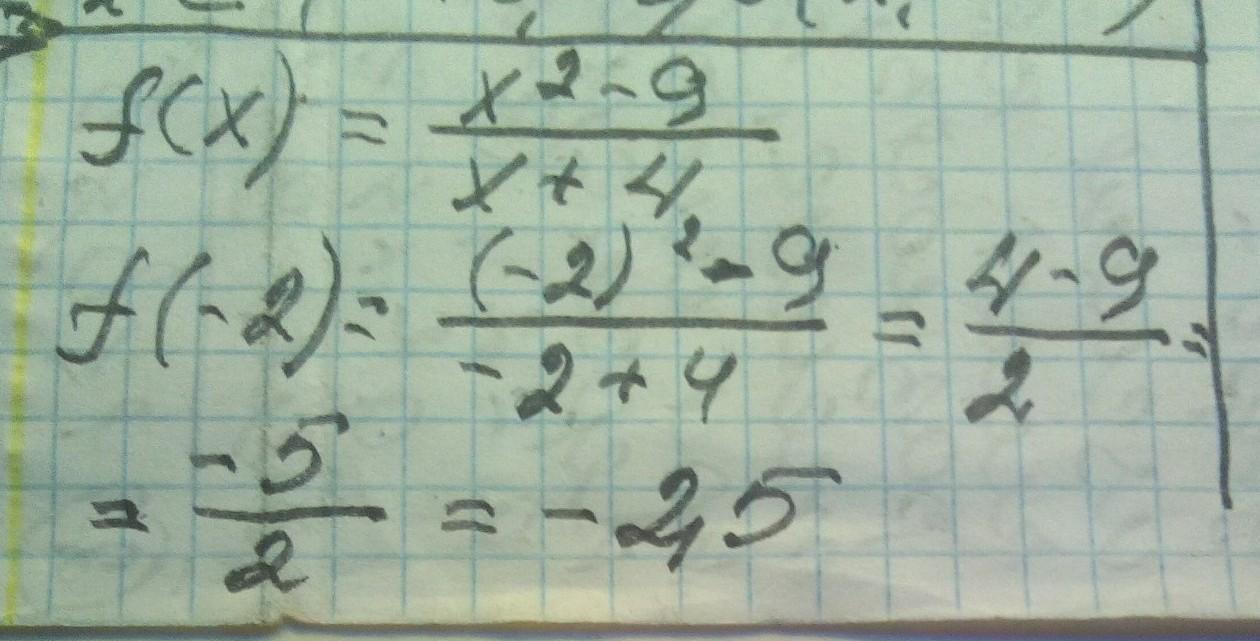 f(x) = (x² - 9)/(x + 4)
f(-2) = ((-2)² - 9)/(-2 + 4) = (4 - 9)/2 =
= (-5)/2 = -2,5